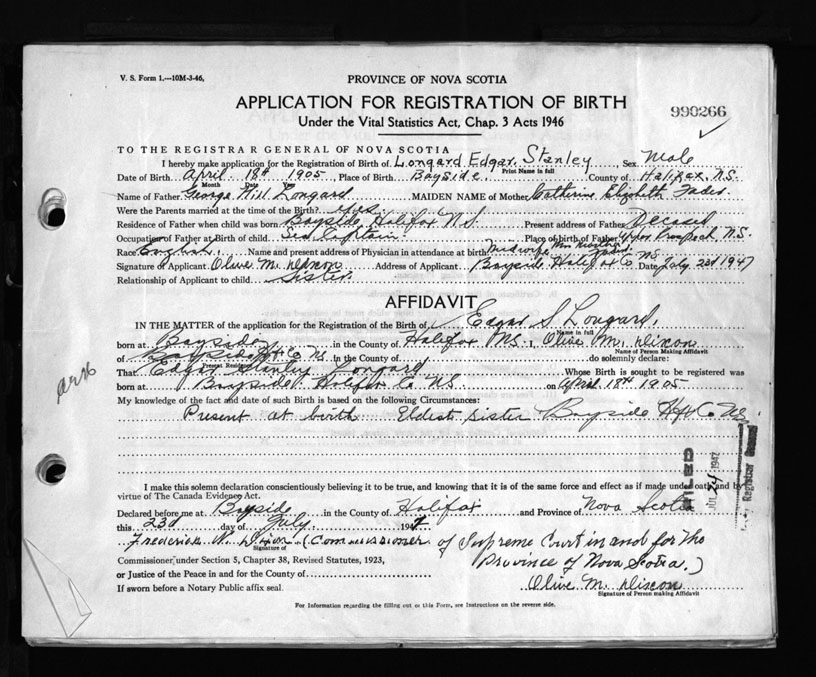 V. S. Form 1.—10M-3-46,
PROVINCE OF NOVA SCOTIA
APPLICATION FOR REGISTRATION OF BIRTH
990266
Under the Vital Statistics Act, Chap. 3 Acts 1946
TO THE REGISTRAR GENERAL OF NOVA SCOTIA
I hereby make application for the Registration of Birth of Longard Edgar Stanley Sex Male
Print Name in full
Date of Birth April 18th 1905, Place of Birth Bayside County of Halifax, N.S.
Month Date Year
Name of Father George Longard MAIDEN NAME of Mother Catherine Elizabeth Fader
Were the Parents married at the time of Birth? yes
Residence of Father when child was born Bayside, Halifax N.S. Present address of Father Deceased
Occupation of Father at Birth of child Sea Captain Place of birth of Father Upper Prospect N.S.
Race English Name and present address of Physician in attendance at birth Midwife Mrs
Signature of Applicant Olive M. Dixon Address of Applicant Bayside Halifax Co. NS Date July 23rd 1947
Relationship of Applicant to child Sister
AFFIDAVIT
IN THE MATTER of the application for the Registration of the Birth of Edgar S. Longard,
Name in full
born at Bayside in the County of Halifax NS. I, Olive M. Dixon
Name of Person Making Affidavit
of Bayside Hfx Co NS In the County of do solemnly declare:
Present Residence
That Edgar Stanley Longard Whose Birth is sought to be registered was
born at Bayside Halifax Co NS on April 18th 1905
My knowledge of the fact and date of such Birth is based on the following Circumstances:
Present at birth Eldest sister Bayside Hfx Co NS.
FILED
JUL 24 1947
Registrar
I make this solemn declaration conscientiously believing it to be true, and knowing that it is of the same force and effect as if made under oath and by
virtue of The Canada Evidence Act.
Declared before me at Bayside in the County of Halifax and Province of Nova Scotia
this 23d day of July 1947
Frederick W. Dixon (Commissioner of Supreme Court in and for the
Signature of
Province of Nova Scotia.)
Commissioner under Section 5, Chapter 38, Revised Statutes, 1923,
or Justice of the Peace in and for the County of
Olive M. Dixon
Signature of Person making Affidavit
If sworn before a Notary Public affix seal.
For Information regarding the filling out of this Form, see Instructions on the reverse side.